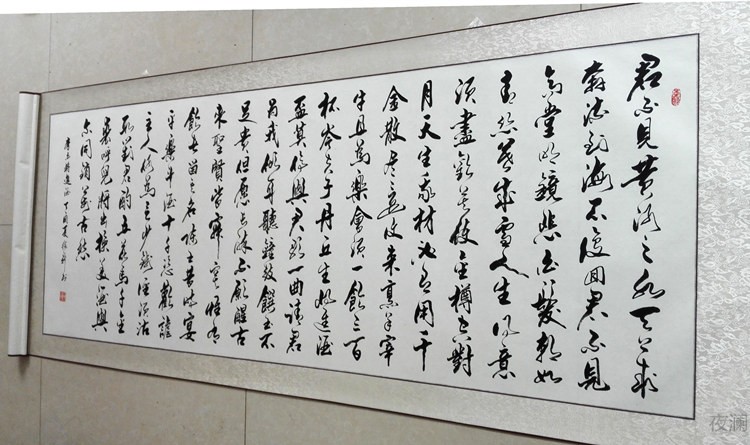 君不見黄河之水天上來
奔流到海不復回君不見
高堂明鏡悲白髮朝如
青絲暮成雪人生得意
須盡歡莫使金樽空對
月天生我材必有用千
金散盡還復來烹羊宰
牛且萬樂會須一飲三百
杯岑夫子丹丘生將進酒
盃莫停與君歌一曲請君
爲我傾耳聽鐘鼓饌玉不
足貴但愿長醉不願醒古
來聖賢皆寂寞惟有
飲者留其名陳王昔時宴
平樂斗酒十千恣歡謔
主人何爲言少錢徑須沽
取對君酌五花馬千金
裘呼兒將出換美酒與
尔同销萬古愁
李白將進酒
夜澜